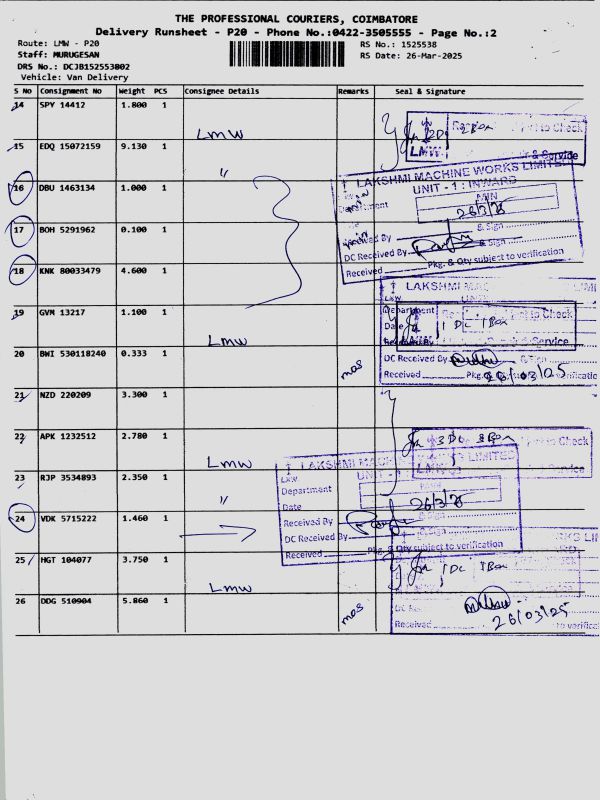 THE PROFESSIONAL COURIERS, COIMBATORE
Delivery Runsheet - P20 - Phone No.:0422-3505555 - Page No.:2
Route: LMW - P20
Staff: MURUGESAN
DRS No.: DCJB152553802
Vehicle: Van Delivery
RS No.: 1525538
RS Date: 26-Mar-2025
S No Consignment No Weight PCS Consignee Details Remarks Seal & Signature
14 SPY 14412 1.800 1
LMW
15 EDQ 15072159 9.130 1
"
16 DBU 1463134 1.000 1
17 BOH 5291962 0.100 1
18 KNK 80033479 4.600 1
19 GVM 13217 1.100 1
LMW
20 BWI 530118240 0.333 1
21 NZD 220209 3.300 1
22 APK 1232512 2.780 1
LMW
23 RJP 3534893 2.350 1
"
24 VDK 5715222 1.460 1
25 HGT 104077 3.750 1
LMW
26 DDG 510904 5.860 1
to Check
LMW
& Service
LAKSHMI MACHINE WORKS LIMITED
UNIT - 1 : INWARD
26/3/25
DC Received By & Sign
Received Pkg. & Qty subject to verification
LAKSHMI
LMW
Department
Date
to Check
1 DC 1 Box
Service
DC Received By
Received Pkg.
26/03/25
3 DC 3 Box
to Check
LAKSHMI MACHINE
LIMITED
LMW
Department
Date
26/3/25
Received By
DC Received By & Sign
Received Pkg. & Qty subject to verification
1 DC 1 Box
26/03/25
Received